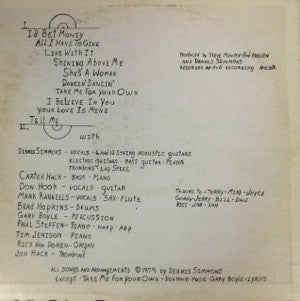 I
I'd Bet Money
All I Have To Give
Live With It
Shining Above Me
She's A Woman
Dancin' Dancin'
Take Me For Your Own
I Believe In You
Your Love Is Mine
Tell Me
II
Produced by Steve
and Dennis Simmons
Recorded at Recording
with
Dennis Simmons - vocals - 6 and 12 string acoustic guitars
electric guitars - bass guitar - piano
trombone - lap steel
Carter Hack - Bass - piano
Don Hook - vocals - guitar
Mark Rannells - vocals - sax, flute
Brad Hopkins - drums
Gary Boyle - percussion
Paul Steffen - piano - harp - arp
Tim Jenison - piano
Rick Van Doren - organ
Jon Hack - trombone
Thanks to - Terry - Mike - Joyce
Candy - Jerry - Bill - Doug
All songs and arrangements © 1979 by Dennis Simmons
Except - Take Me For Your Own - Don Hook music - Gary Boyle - lyrics